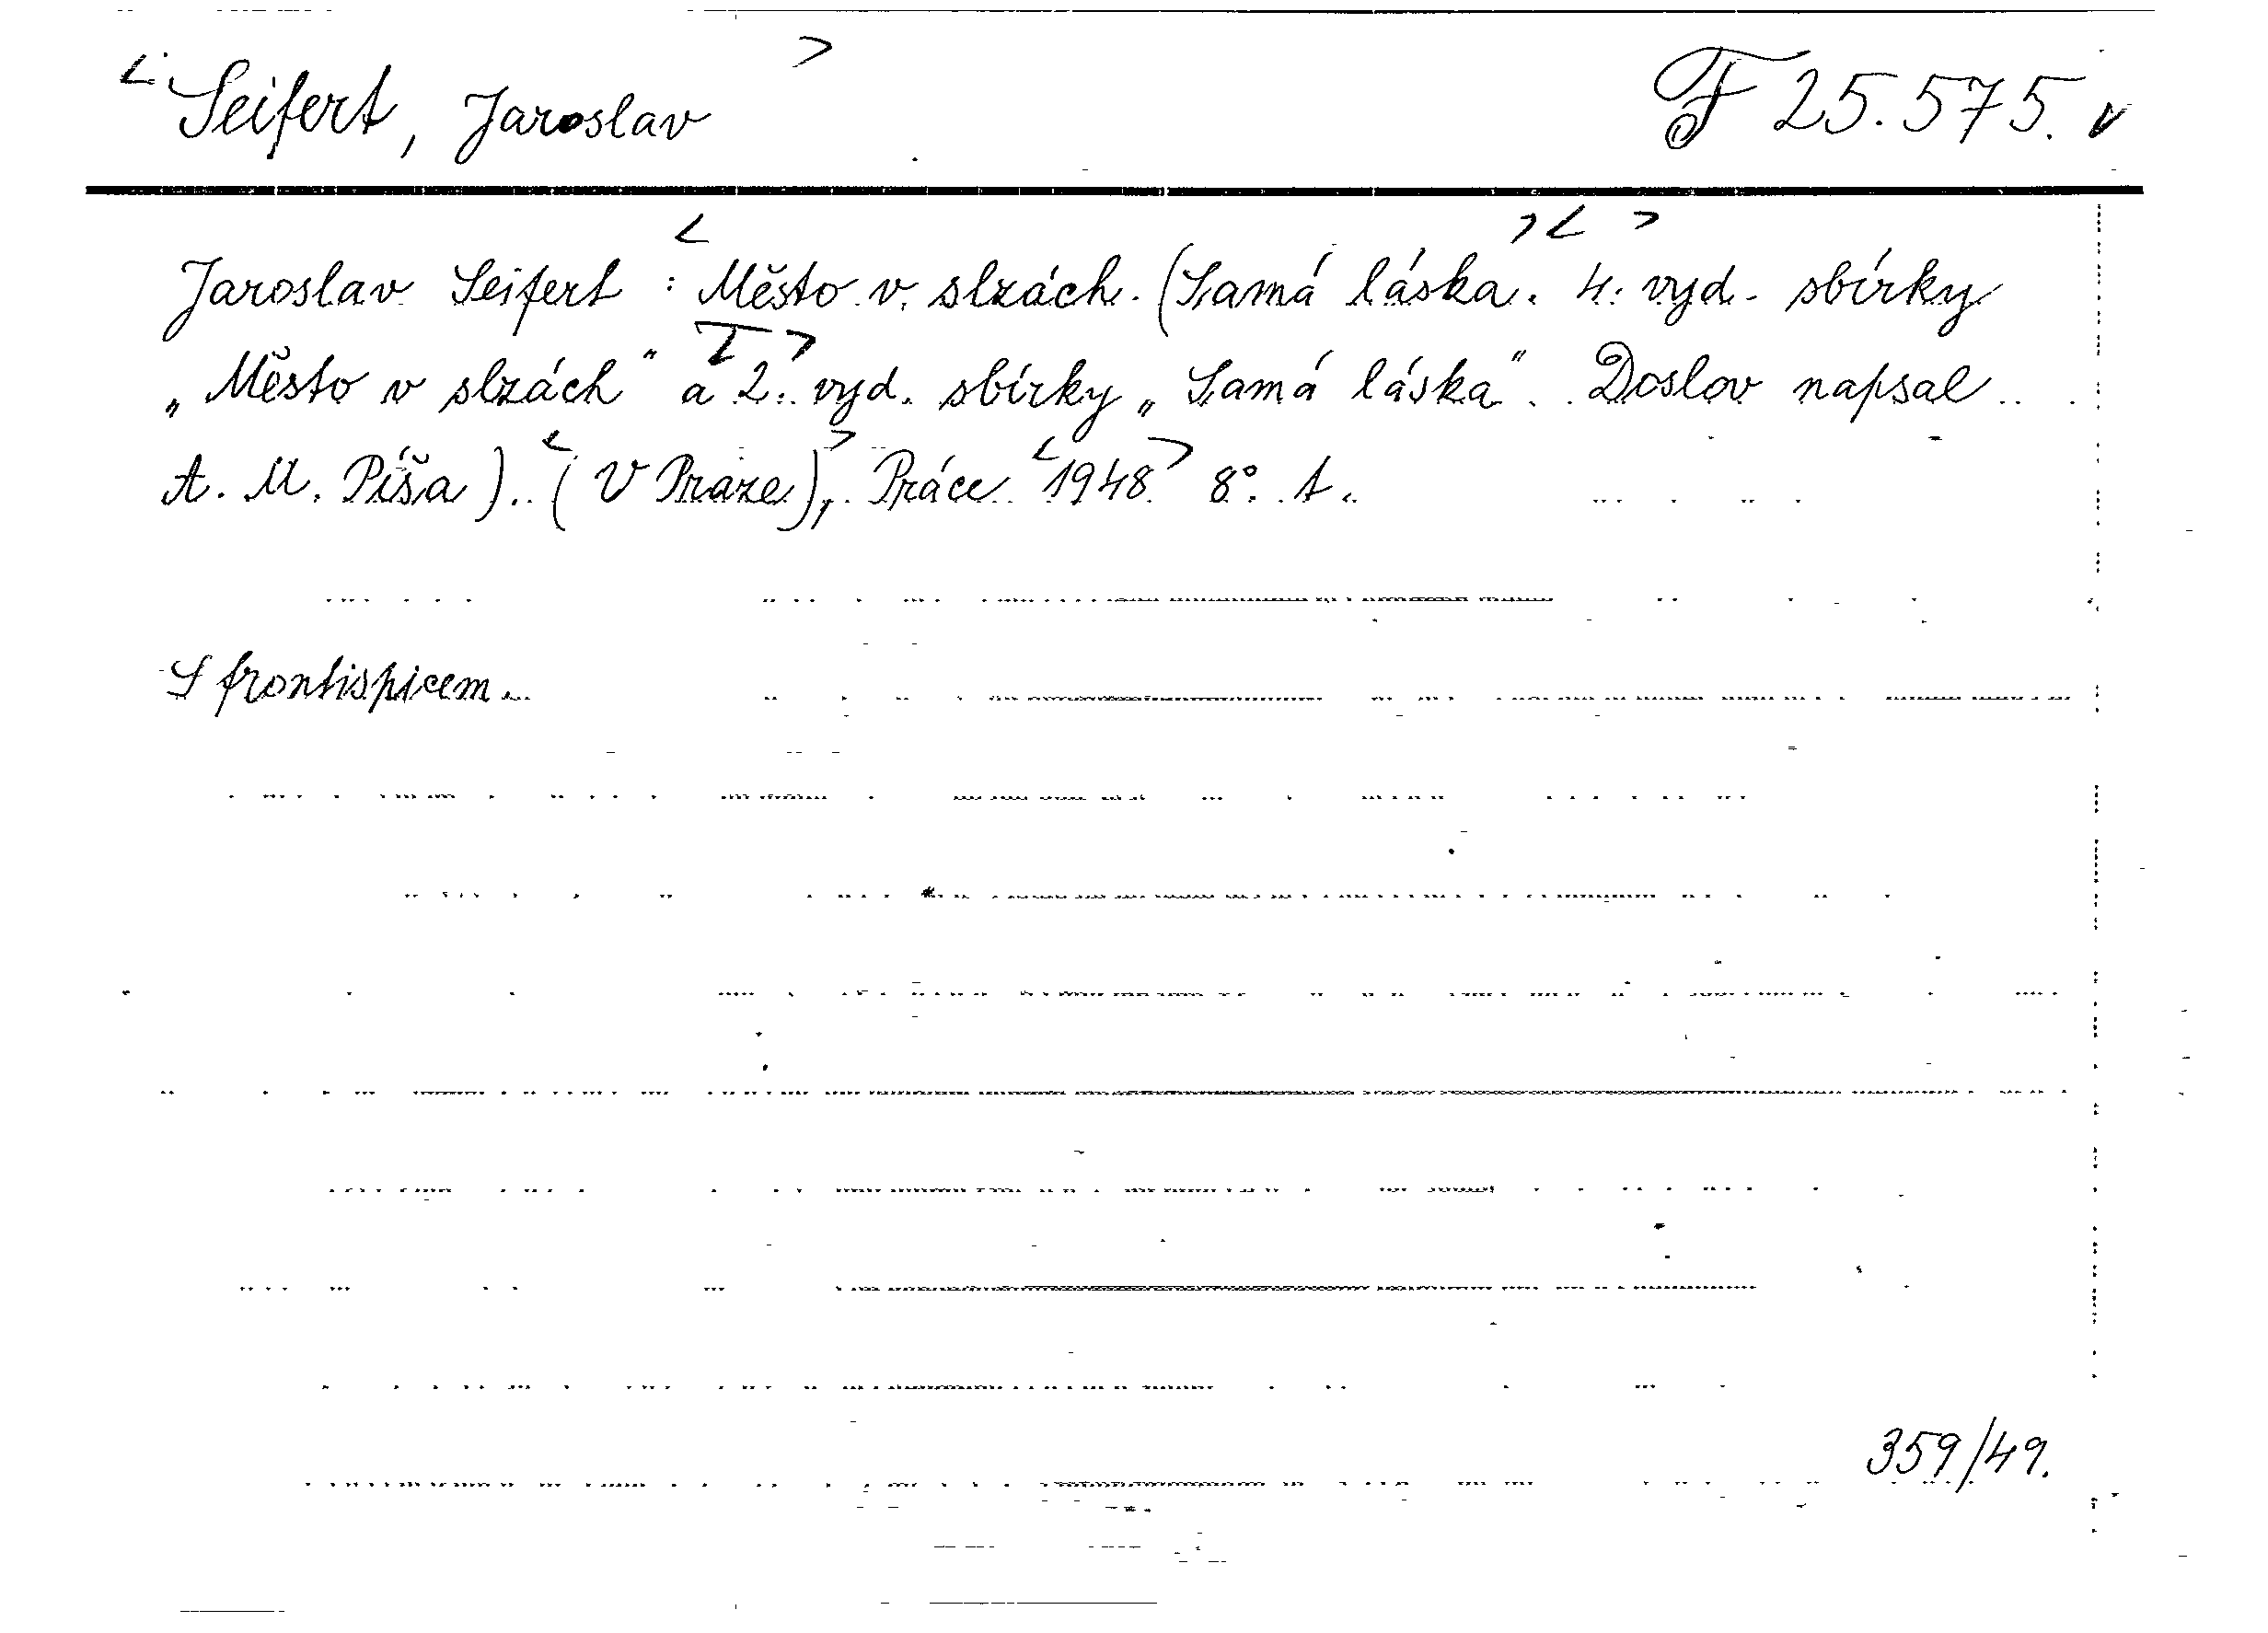 Seifert, Jaroslav F 25.575.
Jaroslav Seifert : Město v slzách. (Samá láska. 4. vyd. sbírky
„Město v slzách" a 2. vyd. sbírky „Samá láska". Doslov napsal
A. M. Píša). (V Praze), Práce 1948 8°. 1.
S frontispicem.
359/49.